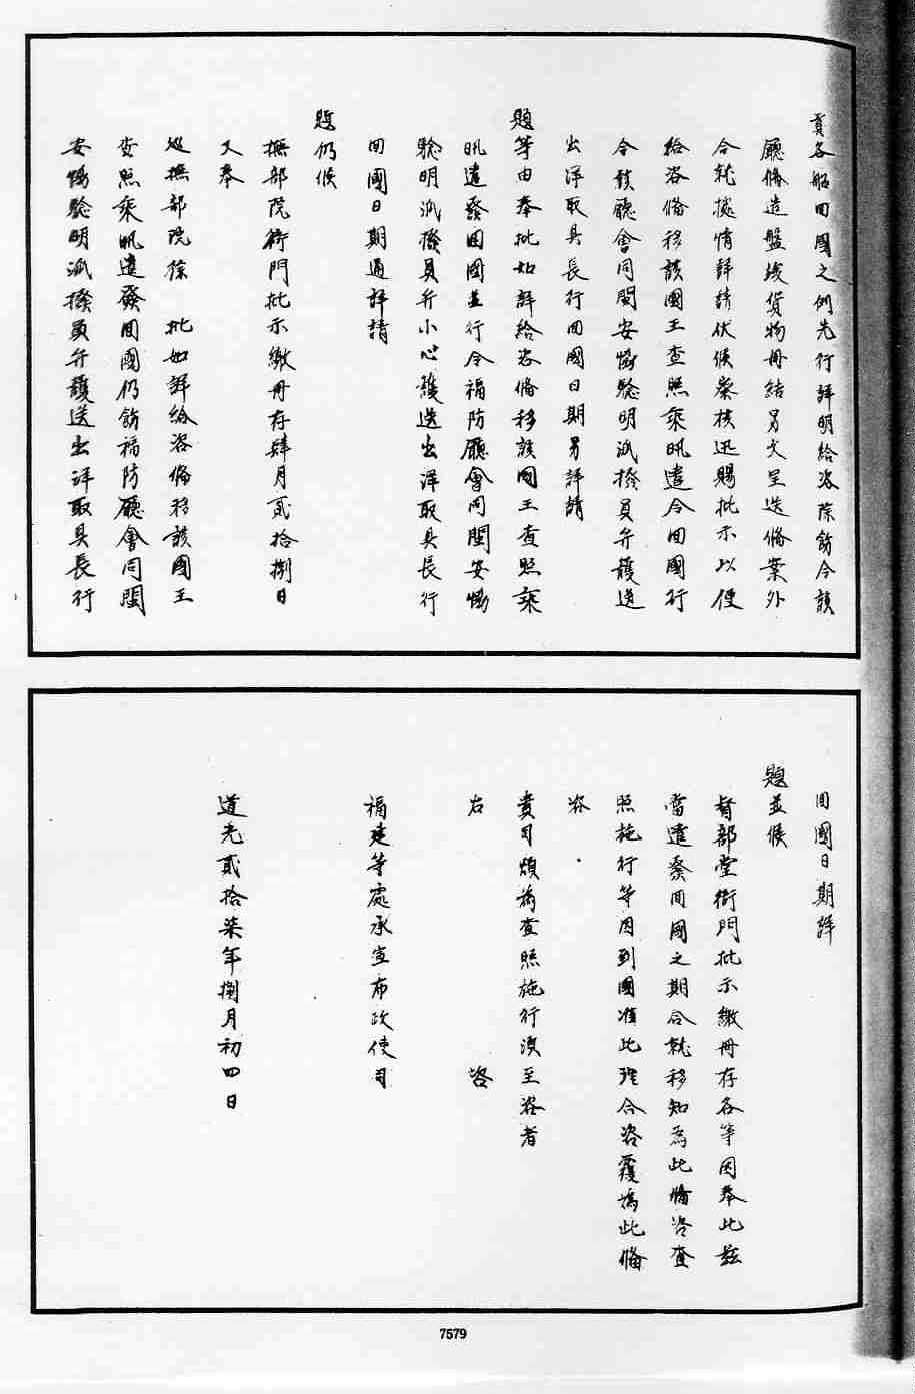 貢各船回國之例先行詳明給咨除飭令該
廳俻造盤竣貨物冊結另文呈送俻案外
合就據情詳請伏候察核迅賜批示以便
給咨俻移該國王查照乘帆遣令回國行
令該廳會同閩安協驗明派撥員弁護送
出洋取具長行回國日期另詳請
題等由奉批如詳給咨俻移該國王查照乘
帆遣發回國並行令福防廳會同閩安協
驗明派撥員弁小心護送出洋取具長行
回國日期通詳請
題仍候
撫部院衙門批示繳冊存肆月貳拾捌日
又奉
巡撫部院徐 批如詳給咨俻移該國王
查照乘帆遣發回國仍飭福防廳會同閩
安協驗明派撥員弁護送出洋取具長行
回國日期詳
題並候
督部堂衙門批示繳冊存各等因奉此茲
當遣發回國之期合就移知為此俻咨查
照施行等因到國准此理合咨覆為此俻
咨
貴司煩為查照施行須至咨者
右 咨
福建等處承宣布政使司
道光貳拾柒年捌月初四日
7579